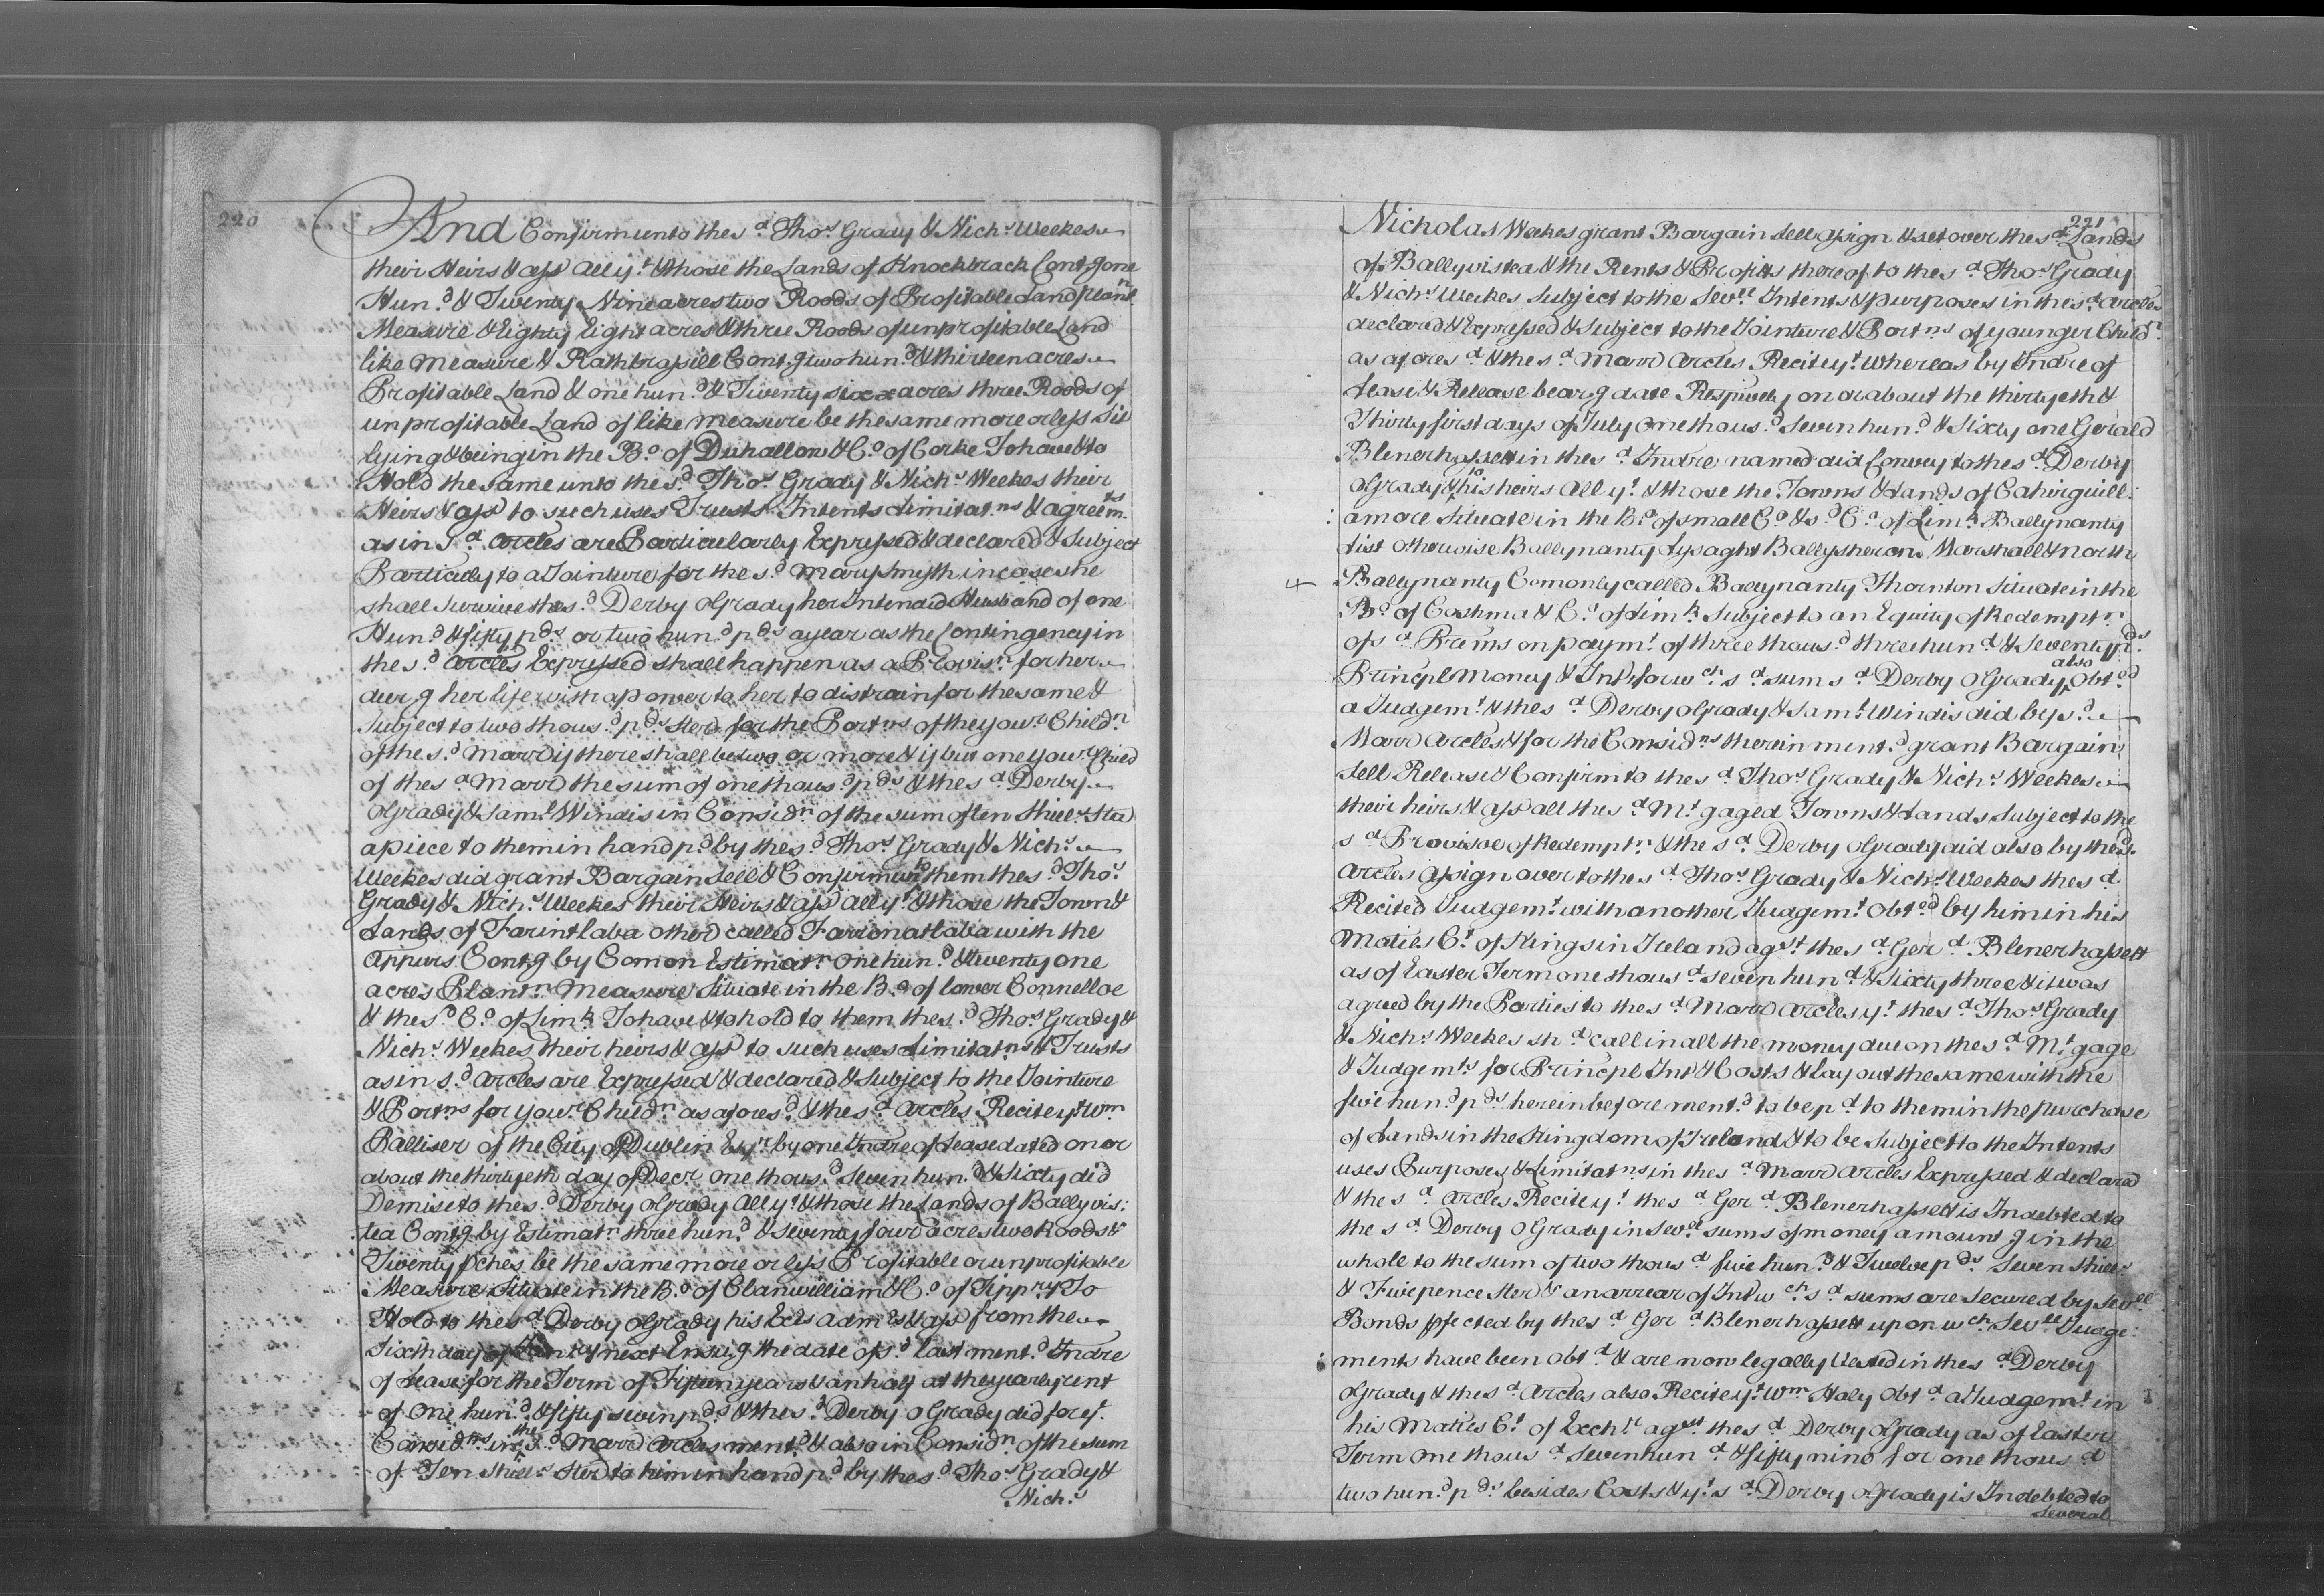 220
And Confirm unto the sd Thos Grady & Nichs Weekes
their Heirs & ass all yt & those the Lands of Knockbrack Contg one
Hund & Twenty Nine acres two Roods of Profitable Land plantn
Measure & Eighty Eight acres & three Roods of unprofitable Land
like Measure & Rathbrassill Contg two hund & thirteen acres
Profitable Land & one hund & Twenty six acres three Roods of
unprofitable Land of like measure be the same more or less Sit
lying & being in the Bo of Duhallow & Co of Corke To have & to
Hold the same unto the sd Thos Grady & Nichs Weekes their
Heirs & ass to such uses Trusts Intents Limitatns & agreemts
as in sd arcles are Particularly Expressed & declared & Subject
Particuly to a Jointure for the sd Mary Smyth in case she
shall survive the sd Derby OGrady her Intended Husband of one
Hund & fifty pds or two hund pds a year as the Contingency in
the sd arcles Expressed shall happen as a Provisn for her
durg her life with a power to her to distrain for the same &
Subject to two thousd pds sterd for the Portns of the your Childn
of the sd Marrd if there shall be two or more & if but one your Child
of the sd Marrd the sum of one thousd pds & the sd Derby
OGrady & Saml Windis in Considn of the sum of ten Shills Ster
apiece to them in hand pd by the sd Thos Grady & Nichs
Weekes did grant Bargain Sell & Confirm unto them the sd Thos
Grady & Nichs Weekes their Heirs & ass all yt & those the Town &
Lands of Farintlaba otherd called Farronatlaba with the
appurs Contg by Comon Estimatn one hund & twenty one
acres Plantn Measure Situate in the Bo of lower Connelloe
& the sd Co of Limk To have & to hold to them the sd Thos Grady &
Nichs Weekes their heirs & ass to such uses Limitatns & Trusts
as in sd arcles are Expressed & declared & Subject to the Jointure
& Portns for your Childn as aforesd & the sd arcles Recite yt Wm
Palliser of the City of Dublin Esqr by one Indre of Lease dated on or
about the thirtyeth day of Decr one thousd Seven hund & Sixty did
Demise to the sd Derby OGrady all yt & those the Lands of Ballyvis:
tea Contg by Estimatn three hund & seventy four acres two Roods &
Twenty pches be the same more or less Profitable or unprofitable
Measure Situate in the Bo of Clanwilliam & Co of Tippry To
Hold to the sd Derby OGrady his Exrs admrs & ass from the
Sixth day of next Ensug the date of sd last mentd Indre
of Lease for the Term of Fifteen years & an half at the yearly rent
of one hund & fifty seven pds & the sd Derby OGrady did for yt
Considns in the sd Marrd arcles mentd & also in Considn of the sum
of Ten Shills Sterd to him in hand pd by the sd Thos Grady &
Nichs
221
Nicholas Weekes grant Bargain Sell assign & set over the sd Lands
of Ballyvistea & the Rents & Profitts thereof to the sd Thos Grady
& Nichs Weekes Subject to the Sevll Intents & purposes in the sd arcles
declared & Expressed & Subject to the Jointure & Portns of younger Childn
as aforesd & the sd Marrd arcles Recite yt Whereas by Indre of
Lease & Release bearg date Respively on or about the thirtyeth &
Thirty first days of July one thousd Seven hund & Sixty one Gerald
Blenerhassett in the sd Indre named did Convey to the sd Derby
OGrady & to his heirs all yt & those the Towns & Lands of Cahirguill:
amore Situate in the Bo of small Co & sd Co of Limk Ballynanty
List otherwise Ballynanty Lysaght Ballysheron Marshall & north
Ballynanty Comonly called Ballynanty Thornton Situate in the
Bo of Coshma & Co of Limk Subject to an Equity of Redemptn
of sd Prems on paymt of three thousd three hund & Seventy pds
Princpl Money & Int for wch sd sum sd Derby OGrady also Obted
a Judgemt & the sd Derby OGrady & Saml Windis did by sd
Marrd arcles & for the Considns therein mentd grant Bargain
Sell Release & Confirm to the sd Thos Grady & Nichs Weekes
their heirs & ass all the sd Mtgaged Towns & Lands Subject to the
sd Provisoe of Redemptn & the sd Derby OGrady did also by the sd
arcles assign over to the sd Thos Grady & Nichs Weekes the sd
Recited Judgemt with another Judgemt Obted by him in his
Maties Ct of Kings in Ireland agst the sd Gerd Blenerhassett
as of Easter Term one thousd seven hund & Sixty three & it was
agreed by the Parties to the sd Marrd arcles yt the sd Thos Grady
& Nichs Weekes shd call in all the money due on the sd Mtgage
& Judgemts for Princpl Int & Costs & lay out the same with the
five hund pds herein before mentd to be pd to them in the purchase
of Lands in the Kingdom of Ireland & to be Subject to the Intents
uses Purposes & Limitatns in the sd Marrd arcles Expressed & declared
& the sd arcles Recite yt the sd Gerd Blenerhassett is Indebted to
the sd Derby OGrady in Sevll sums of money amountg in the
whole to the sum of two thousd five hund & Twelve pds Seven Shills
& Fivepence Sterd & an arrear of Int wch sd sums are Secured by Sevll
Bonds pfected by the sd Gerd Blenerhassett upon wch Sevll Judge:
ments have been Obtd & are now legally Vested in the sd Derby
OGrady & the sd arcles also Recite yt Wm Haly Obtd a Judgemt in
his Maties Ct of Exchr agst the sd Derby OGrady as of Easter
Term one thousd Seven hund & fifty nine for one thousd
two hund pds besides Costs & yt sd Derby OGrady is Indebted to
Several